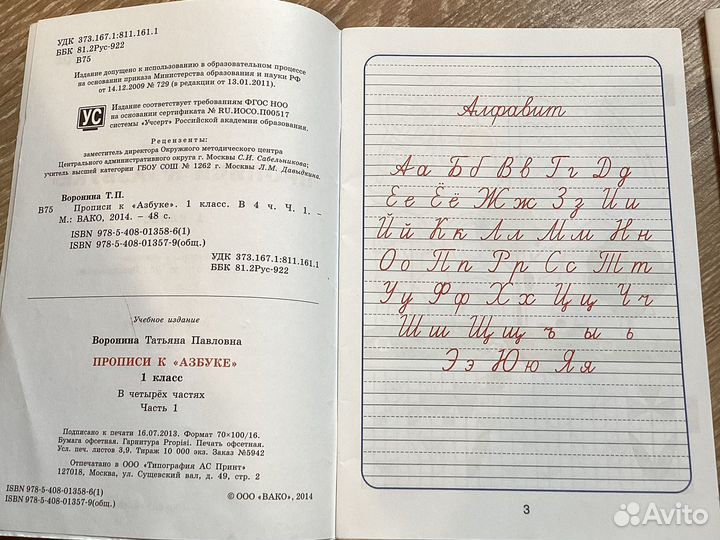 УДК 373.167.1:811.161.1
ББК 81.2Рус-922
В75
Издание допущено к использованию в образовательном процессе
на основании приказа Министерства образования и науки РФ
от 14.12.2009 № 729 (в редакции от 13.01.2011).
УС
Издание соответствует требованиям ФГОС НОО
на основании сертификата № RU.ИОСО.П00517
системы «Учсерт» Российской академии образования.
Рецензенты:
заместитель директора Окружного методического центра
Центрального административного округа г. Москвы С.И. Сабельникова;
учитель высшей категории ГБОУ СОШ № 1262 г. Москвы Л.М. Давыдкина.
Воронина Т.П.
В75 Прописи к «Азбуке». 1 класс. В 4 ч. Ч. 1. –
М.: ВАКО, 2014. – 48 с.
ISBN 978-5-408-01358-6(1)
ISBN 978-5-408-01357-9(общ.)
УДК 373.167.1:811.161.1
ББК 81.2Рус-922
Учебное издание
Воронина Татьяна Павловна
ПРОПИСИ К «АЗБУКЕ»
1 класс
В четырёх частях
Часть 1
Подписано к печати 16.07.2013. Формат 70×100/16.
Бумага офсетная. Гарнитура Propisi. Печать офсетная.
Усл. печ. листов 3,9. Тираж 10 000 экз. Заказ №5942
Отпечатано в ООО «Типография АС Принт»
127018, Москва, ул. Сущевский вал, д. 49, стр. 2
ISBN 978-5-408-01358-6(1)
ISBN 978-5-408-01357-9(общ.)
© ООО «ВАКО», 2014
Алфавит
Аа Бб Вв Гг Дд
Ее Ёё Жж Зз Ии
Йй Кк Лл Мм Нн
Оо Пп Рр Сс Тт
Уу Фф Хх Цц Чч
Шш Щщ ъ ы ь
Ээ Юю Яя
3
Avito